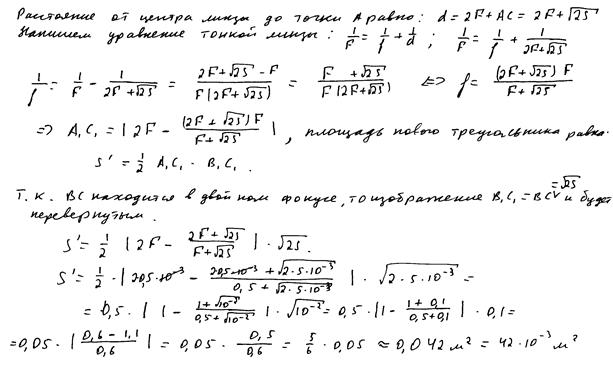 Расстояние от центра линзы до точки A равно: d = 2F + AC = 2F + √2S
Напишем уравнение тонкой линзы: 1/F = 1/f + 1/d ; 1/F = 1/f + 1/(2F+√2S)
1/f = 1/F - 1/(2F+√2S) = (2F+√2S - F)/(F(2F+√2S)) = (F + √2S)/(F(2F+√2S)) <=> f = ((2F+√2S) F)/(F+√2S)
=> A₁C₁ = |2F - ((2F+√2S)F)/(F+√2S)|, площадь нового треугольника равна
S' = 1/2 A₁C₁ · B₁C₁.
Т.к. BC находится в двойном фокусе, то изображение B₁C₁ = BC = √2S и будет
перевернутым.
S' = 1/2 |2F - (2F+√2S)/(F+√2S)| · √2S.
S' = 1/2 · | - ( + √2·5·10⁻³)/(0,5 + √2·5·10⁻³)| · √2·5·10⁻³ =
= 0,5 · |1 - (1+√10⁻²)/(0,5+√10⁻²)| · √10⁻² = 0,5 · |1 - (1+0,1)/(0,5+0,1)| · 0,1 =
= 0,05 · |(0,6 - 1,1)/0,6| = 0,05 · 0,5/0,6 = 5/6 · 0,05 ≈ 0,042 м² = 42·10⁻³ м²